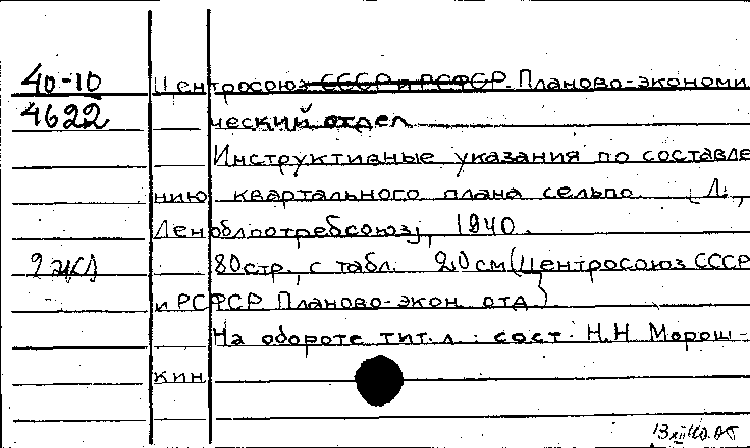 40-10
4622
Центросоюз СССР и РСФСР. Планово-экономи
ческий отдел
Инструктивные указания по составле
нию квартального плана сельпо. [Л.,
Леноблпотребсоюз], 1940.
80стр., с табл. 20см (Центросоюз СССР
и РСФСР Планово-экон. отд)
На обороте тит. л.: сост. Н.Н Морош-
кин
2 экз